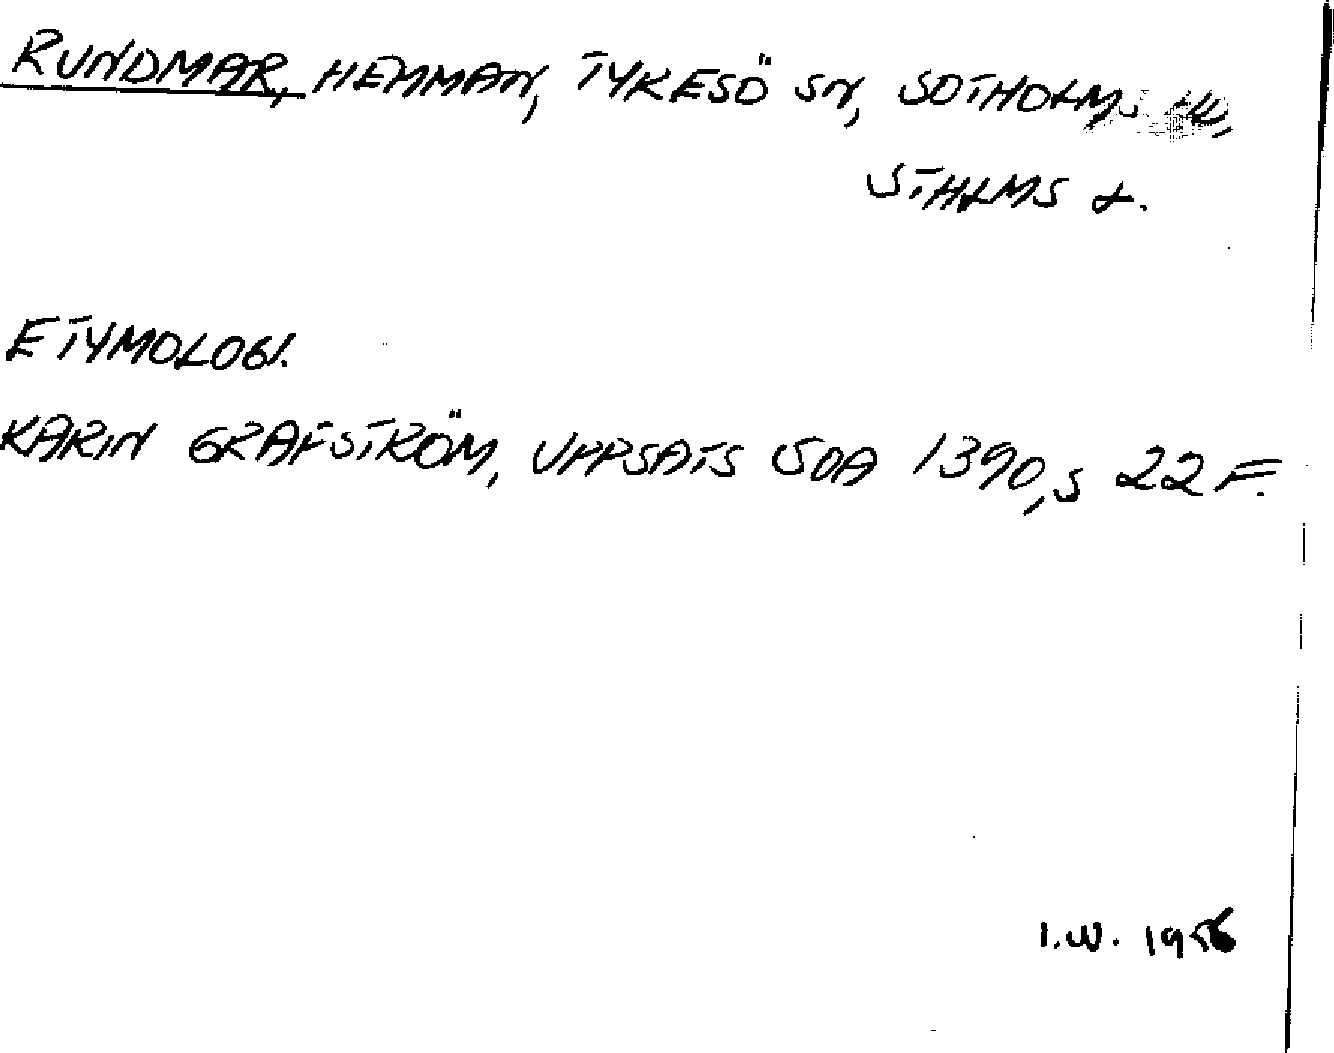 RUNDMAR, HEMMAN, TYRESÖ SN, SOTHOLMS HD,
STHLMS L.
ETYMOLOGI.
KARIN GRAFSTRÖM, UPPSATS SOA 1390, S 22 F.
I.W. 1956